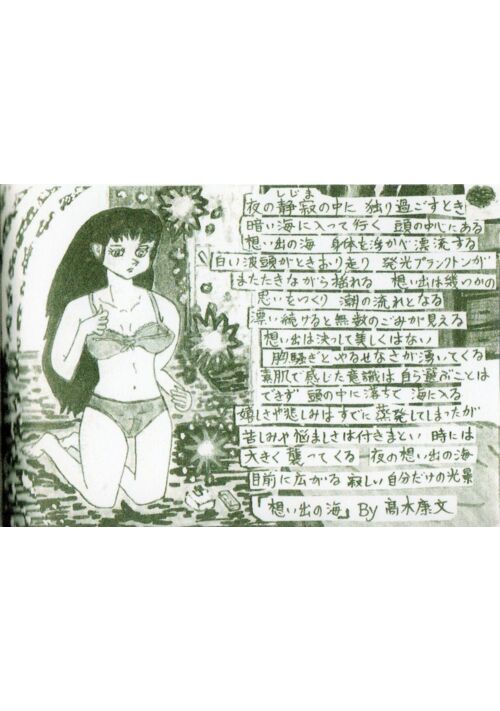 しじま
夜の静寂の中に 独り過ごすとき
暗い海に入って行く 頭の中心にある
想い出の海 身体を浮かべ漂流する
白い波頭がときおり走り 発光プランクトンが
またたきながら揺れる 想い出は幾つかの
思いをつくり 潮の流れとなる
漂い続けると無数のごみが見える
想い出は決して美しくはない
胸騒ぎとやるせなさが湧いてくる
素肌で感じた意識は自ら選ぶことは
できず 頭の中に落ちて 海に入る
嬉しさや悲しみはすでに蒸発してしまったが
苦しみや悩ましさは付きまとい 時には
大きく襲ってくる 夜の想い出の海
目前に広がる 寂しい自分だけの光景
「想い出の海」 By 高木康文